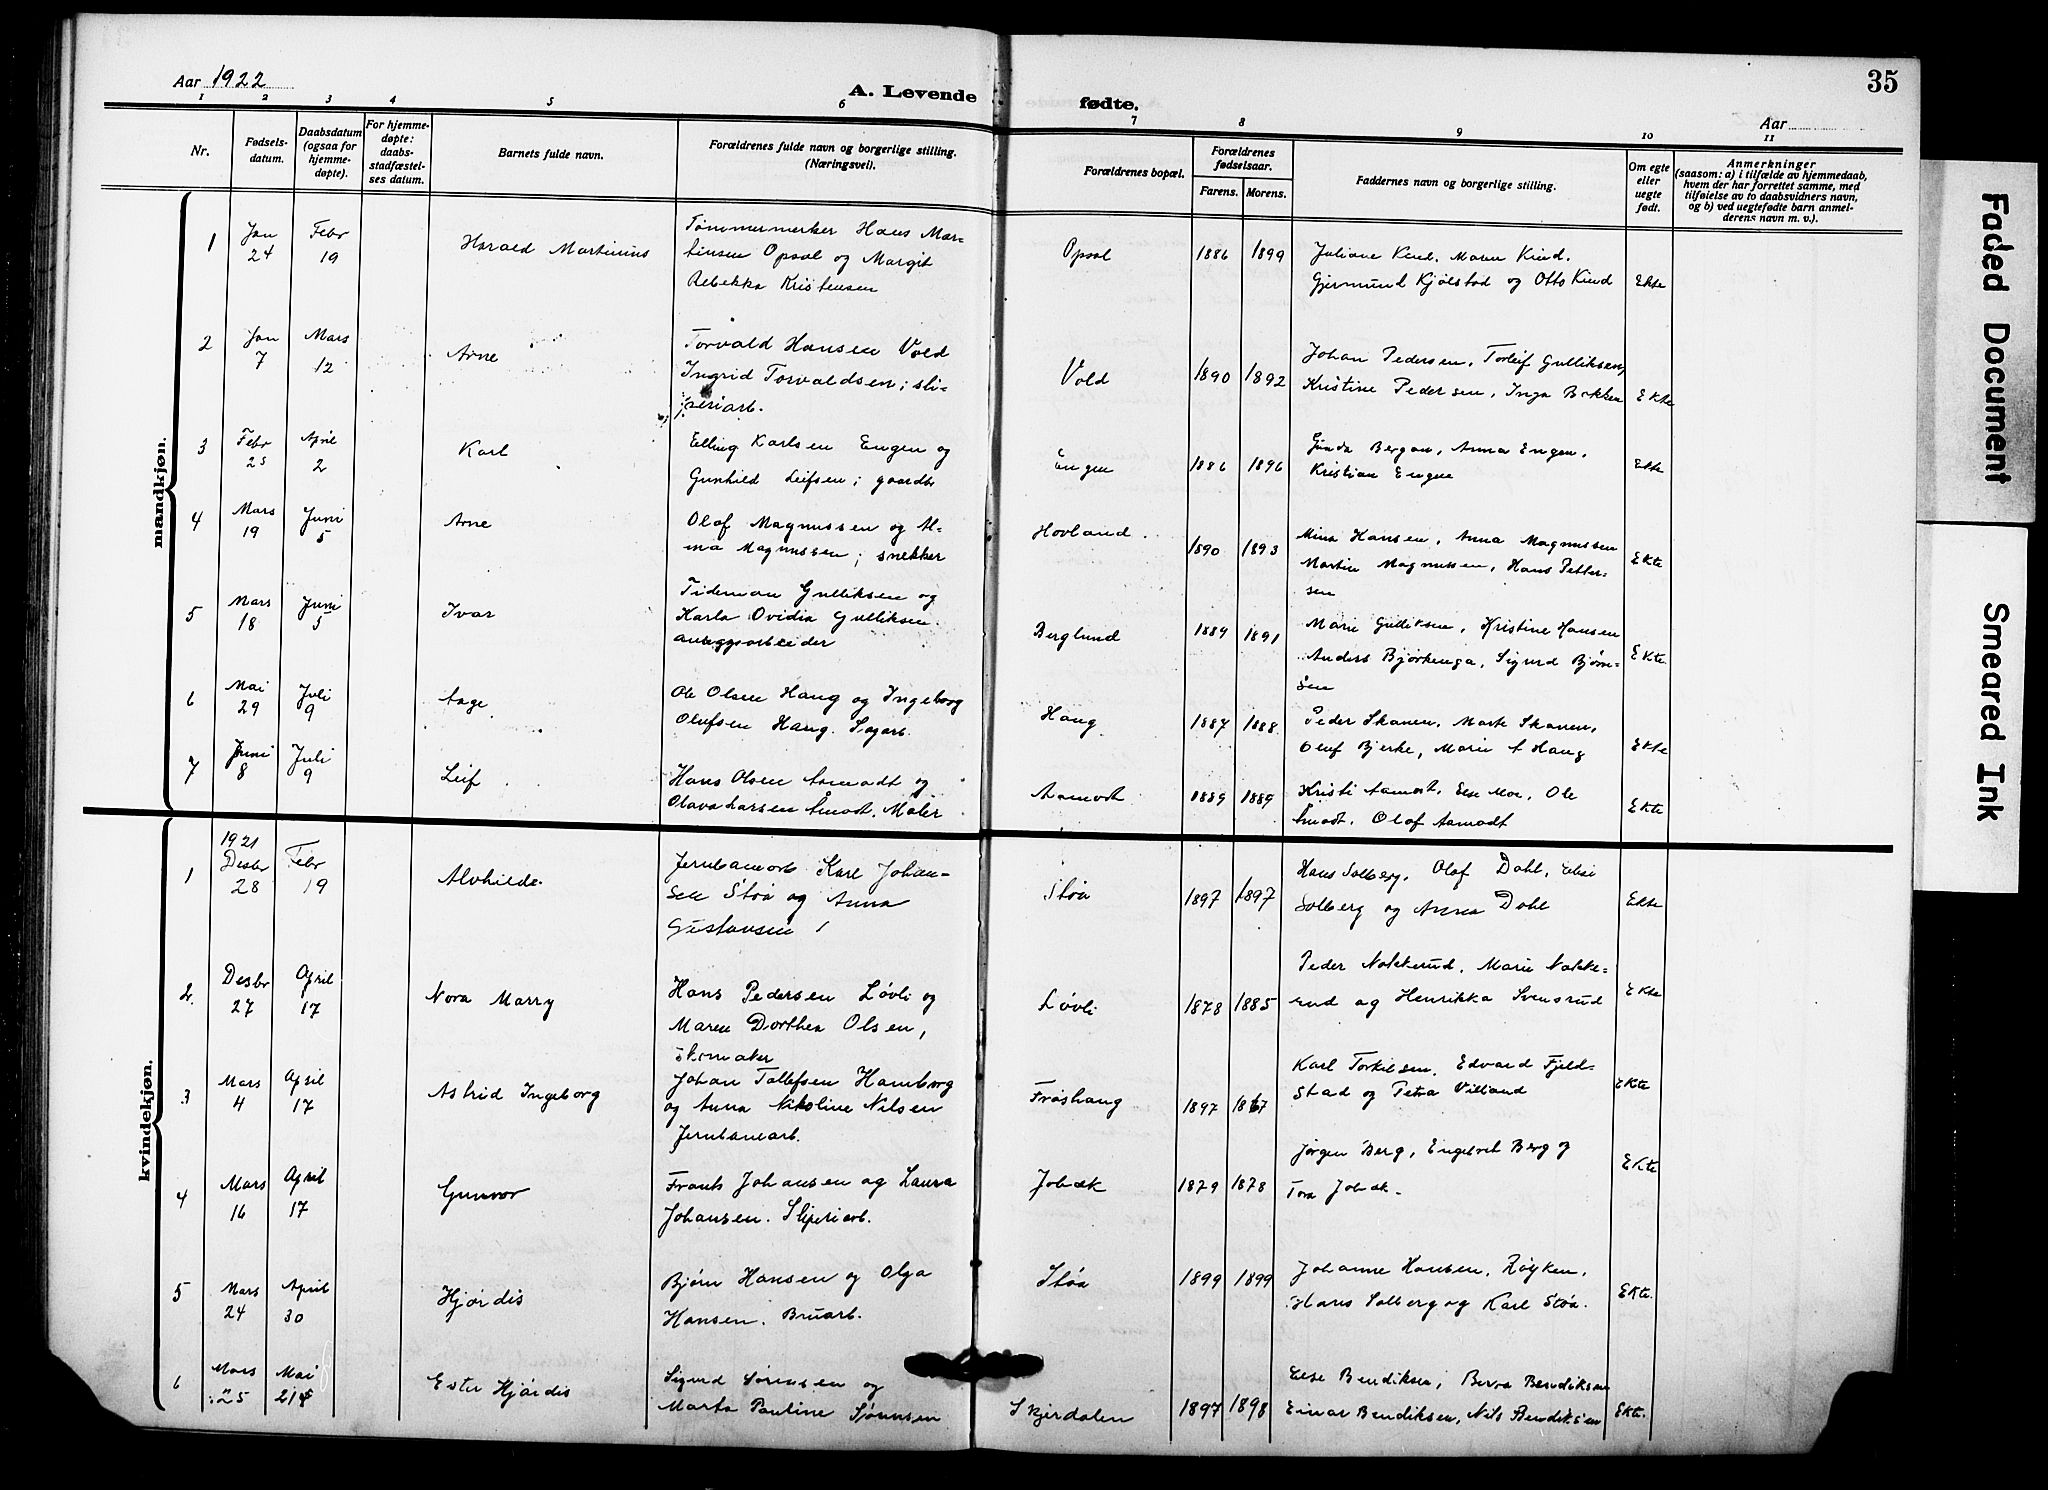 Aar 1922
A. Levende fødte.
35
Aar
1 2 3 4 5 6 7 8 9 10 11
Nr.
Fødsels-
datum.
Daabsdatum
(ogsaa for
hjemme-
døpte).
For hjemme-
døpte:
daabs-
stadfæstel-
ses datum.
Barnets fulde navn.
Forældrenes fulde navn og borgerlige stilling.
(Næringsvei).
Forældrenes bopæl.
Forældrenes
fødselsaar.
Farens. Morens.
Faddernes navn og borgerlige stilling.
Om egte
eller
uegte
født.
Anmerkninger
(saasom: a) i tilfælde av hjemmedaab,
hvem der har forrettet samme, med
tilføielse av to daabsvidners navn,
og b) ved uegtefødte barn anmel-
derens navn m. v.).
mandkjøn.
1
Jan
24
Febr
19
Harald Martinius
Tømmermerker Hans Mar-
tinsen Opsal og Margit
Rebekka Kristensen
Opsal
1886 1899
Juliane Kind, Maren Kind,
Gjermund Kjølstad og Otto Kind
Ekte
2
Jan
7
Mars
12
Arne
Torvald Hansen Vold
Ingrid Torvaldsen; sli-
periarb.
Vold
1890 1892
Johan Pedersen, Torleif Gulliksen,
Kristine Pedersen, Inga Bakken
Ekte
3
Febr
25
April
2
Karl
Elling Karlsen Engen og
Gunhild Leifsen; gaardbr
Engen
1886 1896
Gunda Bergan, Anna Engen,
Kristian Engen
Ekte
4
Mars
19
Juni
5
Arne
Olaf Magnussen og Al-
ma Magnussen; snekker
Hovland
1890 1893
Mina Hansen, Anna Magnussen
Martin Magnussen, Hans Petter-
sen
Ekte
5
Mars
18
Juni
5
Ivar
Tideman Gulliksen og
Karla Ovidia Gulliksen
anlegsarbeider
Berglund
1889 1891
Marie Gulliksen, Kristine Hansen
Anders Bjørkenga, Sigurd Bjørn-
sen
Ekte
6
Mai
29
Juli
9
Aage
Ole Olsen Haug og Ingeborg
Olufsen Haug. Sagarb.
Haug
1887 1888
Peder Skanen, Marte Skanen,
Oluf Bjerke, Marie A Haug
Ekte
7
Juni
8
Juli
9
Leif
Hans Olsen Aamodt og
Olava Larsen Åmodt, Maler
Aamodt
1889 1889
Kristi Aamodt, Else Moe, Ole
Åmodt, Olaf Aamodt
Ekte
kvindekjøn.
1
1921
Desbr
28
Febr
19
Alvhilde
Jernbanearb Karl Johan-
sen Støa og Anna
Gustavsen
Støa
1897 1897
Hans Solberg, Olaf Dahl, Elise
Solberg og Anna Dahl
Ekte
2.
Desbr
27
April
17
Nora Marry
Hans Pedersen Løvli og
Maren Dorthea Olsen,
skomaker
Løvli
1878 1885
Peder Nakkerud, Marie Nakke-
rud og Henrikka Svensrud
Ekte
3
Mars
4
April
17
Astrid Ingeborg
Johan Tollefsen Hamborg
og Anna Nikoline Nilsen
Jernbanearb.
Frøshaug
1897
Karl Torkilsen, Edvard Fjeld-
stad og Petra Villand
Ekte
4
Mars
16
April
17
Gunvor
Frants Johansen og Laura
Johansen. Sliperiarb.
Jobæk
1879 1878
Jørgen Berg, Engebret Berg og
Tora Jobæk.
Ekte
5
Mars
24
April
30
Hjørdis
Bjørn Hansen og Olga
Hansen. Bruarb.
Støa
1899 1899
Johanne Hansen, Røyken,
Hans Solberg og Karl Støa.
Ekte.
6
Mars
25
Mai
Ester Hjørdis
Sigurd Sørensen og
Marta Pauline Sørensen
Skjerdalen
1897 1898
Else Bendiksen, Berta Bendiksen
Einar Bendiksen, Nils Bendiksen
Ekte.
Faded Document
Smeared Ink